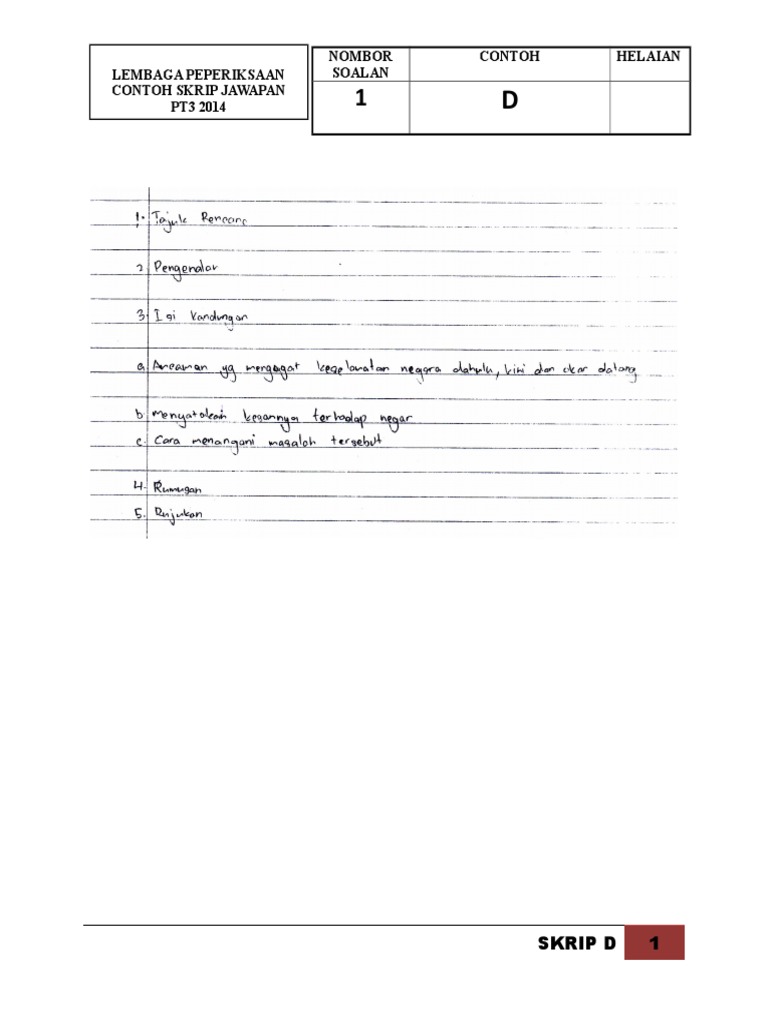 LEMBAGA PEPERIKSAAN
CONTOH SKRIP JAWAPAN
PT3 2014
NOMBOR
SOALAN
CONTOH
HELAIAN
1
D
1. Tajuk Rencana
2 Pengenalan
3. Isi Kandungan
a. Ancaman yg menggugat keselamatan negara dahulu, kini dan akan datang
b menyatakan kesannya terhadap negar
c. Cara menangani masalah tersebut
4. Rumusan
5. Rujukan
SKRIP D
1